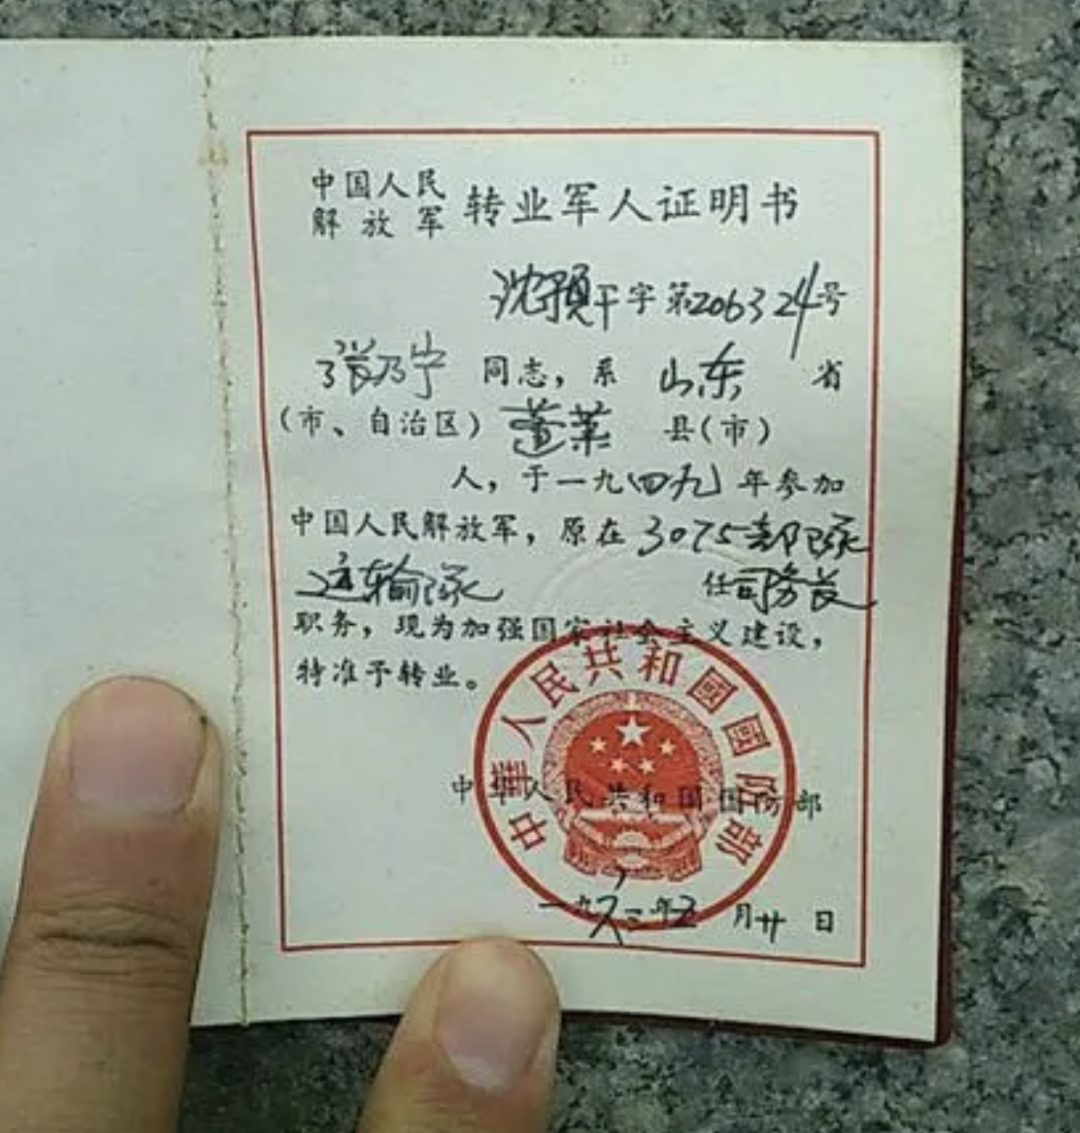 中国人民
解放军 转业军人证明书
沈预干字第206324号
张乃宁 同志，系 山东 省
（市、自治区）蓬莱 县（市）
人，于一九四九年参加
中国人民解放军，原在3075部队
运输队 任司务长
职务，现为加强国家社会主义建设，
特准予转业。
中华人民共和国国防部
中華人民共和國國防部
一九六三年五月廿日